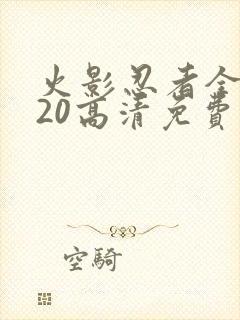 火影忍者全
20高清免費
空騎